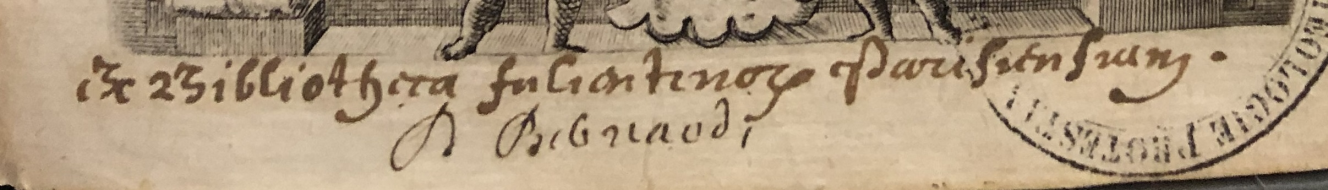 ex Bibliotheca fulientinoꝝ Parisiensium.
S Bernardi
OLOGIE PROTESTA